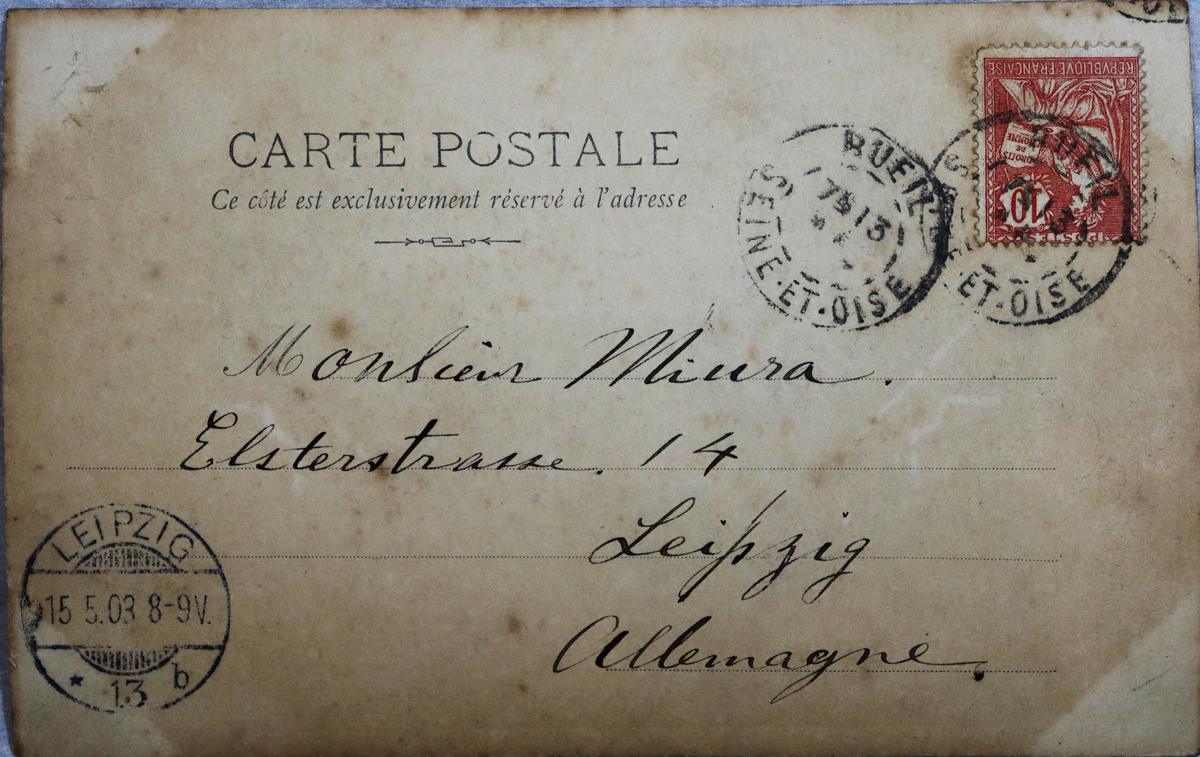 CARTE POSTALE
Ce côté est exclusivement réservé à l'adresse
REPVBLIQVE FRANÇAISE
DROITS
DE
10
POSTES
RUEIL
13
SEINE-ET-OISE
RUEIL
ET-OISE
Monsieur Miura.
Elsterstrasse. 14
Leipzig
Allemagne.
LEIPZIG
15 5.03 8-9V.
* 13 b